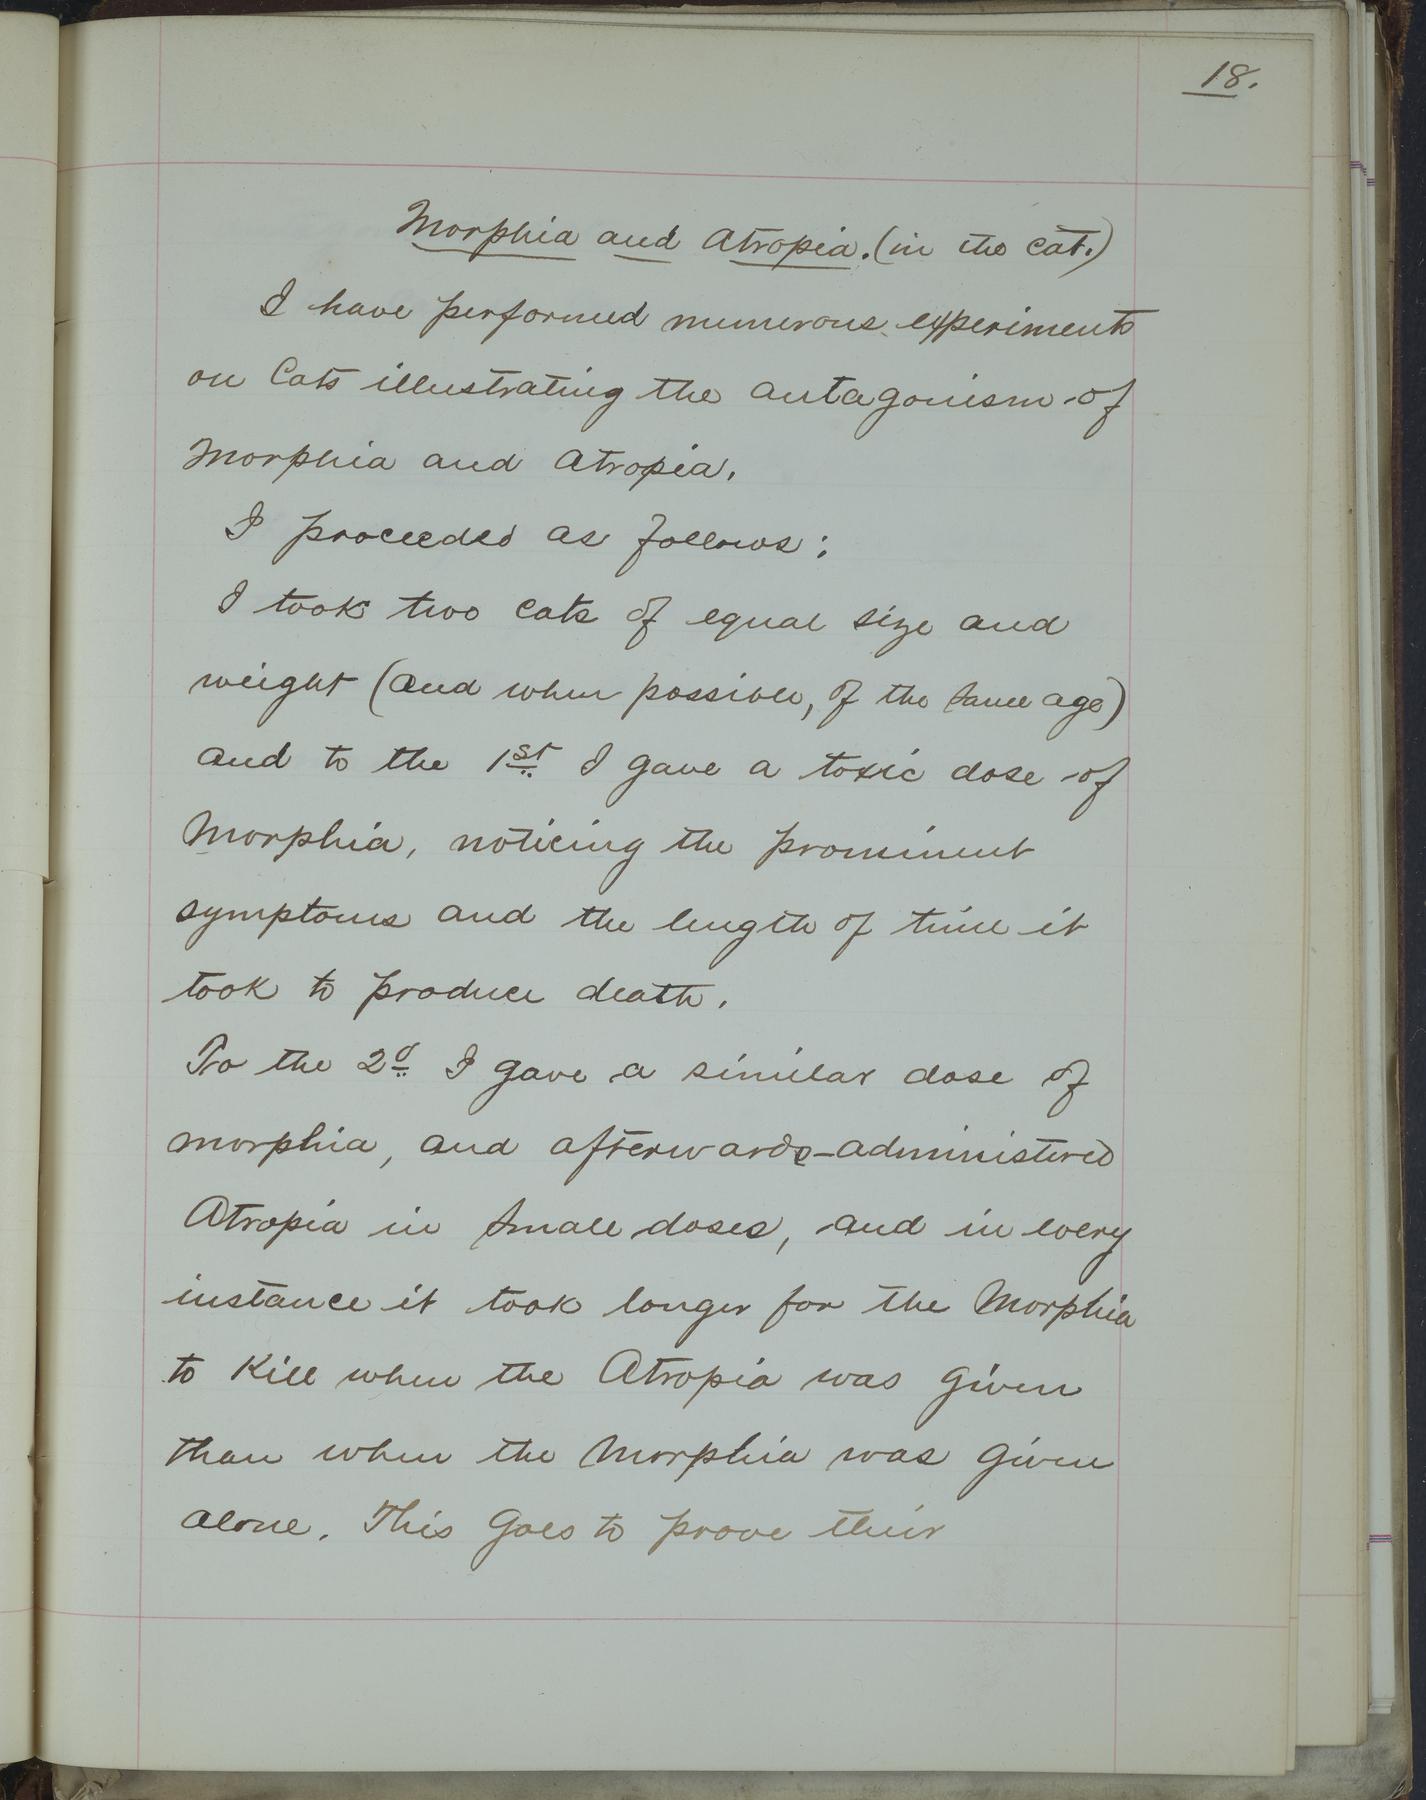 18.
Morphia and Atropia. (in the cat.)
I have performed numerous experiments
on Cats illustrating the antagonism of
Morphia and Atropia.
I proceeded as follows:
I took two cats of equal size and
weight (and when possible, of the same age)
and to the 1st I gave a toxic dose of
Morphia, noticing the prominent
symptoms and the length of time it
took to produce death.
To the 2d I gave a similar dose of
morphia, and afterwards administered
Atropia in small doses, and in every
instance it took longer for the Morphia
to Kill when the Atropia was given
than when the Morphia was given
alone. This Goes to prove their